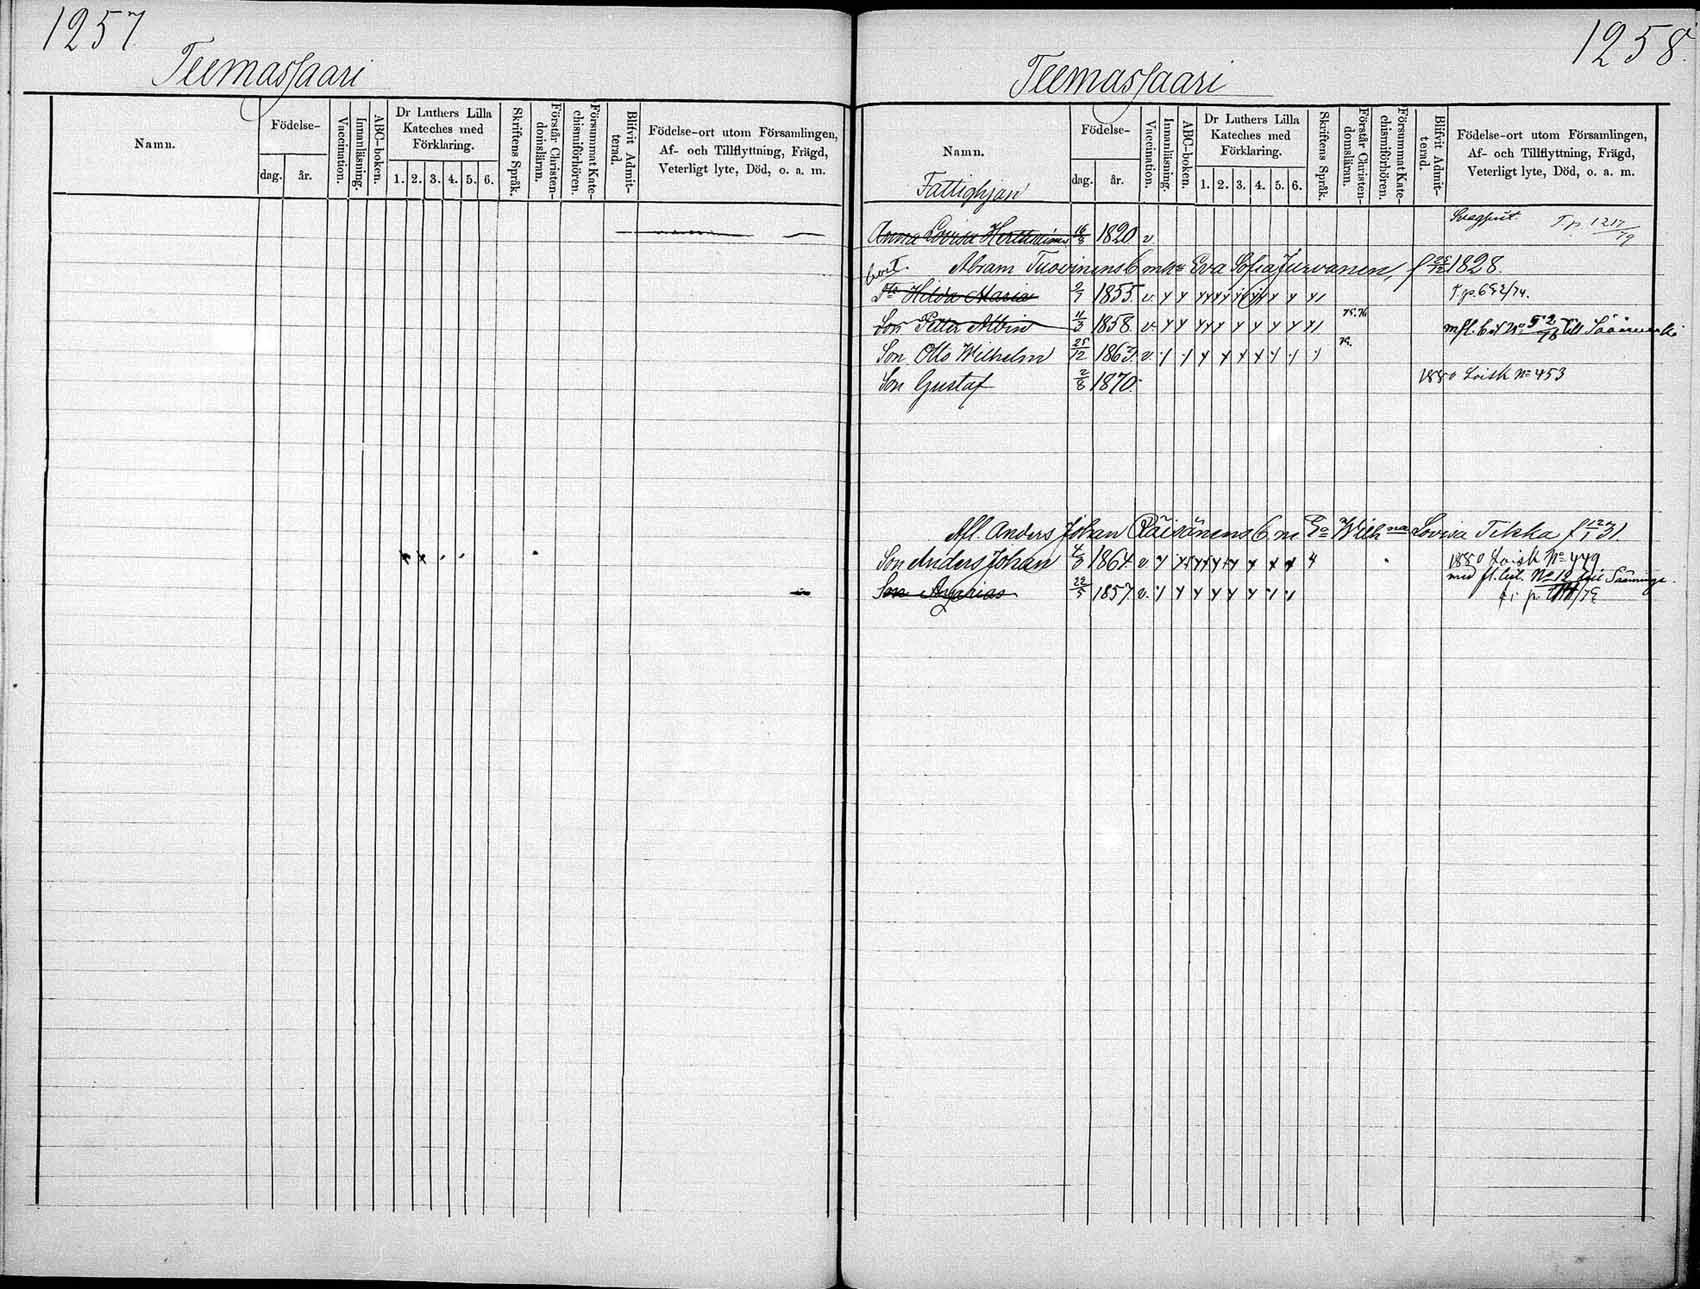 1257
Teemassaari
Namn.
Födelse-
dag.
år.
Vaccination.
Innanläsning.
ABC-boken.
Dr Luthers Lilla
Kateches med
Förklaring.
1. 2. 3. 4. 5. 6.
Skriftens Språk.
Förstår Christen-
domslärnn.
Försummat Kate-
chismiförhören.
Blifvit Admit-
terad.
Födelse-ort utom Församlingen,
Af- och Tillflyttning, Frägd,
Veterligt lyte, Död, o. a. m.
1258.
Teemassaari
Namn.
Födelse-
dag.
år.
Vaccination.
Innanläsning.
ABC-boken.
Dr Luthers Lilla
Kateches med
Förklaring.
1. 2. 3. 4. 5. 6.
Skriftens Språk.
Förstår Christen-
domsläran.
Försummat Kate-
chismiförhören.
Blifvit Admit-
terad.
Födelse-ort utom Församlingen,
Af- och Tillflyttning, Frägd,
Veterligt lyte, Död, o. a. m.
Fattighjon
Anna Lovisa 1820 v T. p. 1217/79
Abram Tuovinens Eva Sofia Jurvanen, f 1828.
Hilda Maria 1855. v. T. p. 692/74.
Son Petter Albin 11/3 1858. v. mfl. bet No 52/78 till
Son Otto Wilhelm 25/12 186 v.
Son Gustaf 2/8 1870. 1880 Loisk No 453
Afl. Anders Johan Räisänens Wilhna Lovisa Tikka f 31
Son Anders Johan 4/3 1864 v. 1880 Loisk No 449
med fl. bet. No 12 till Sääminge
Son 22/5 1857 v.